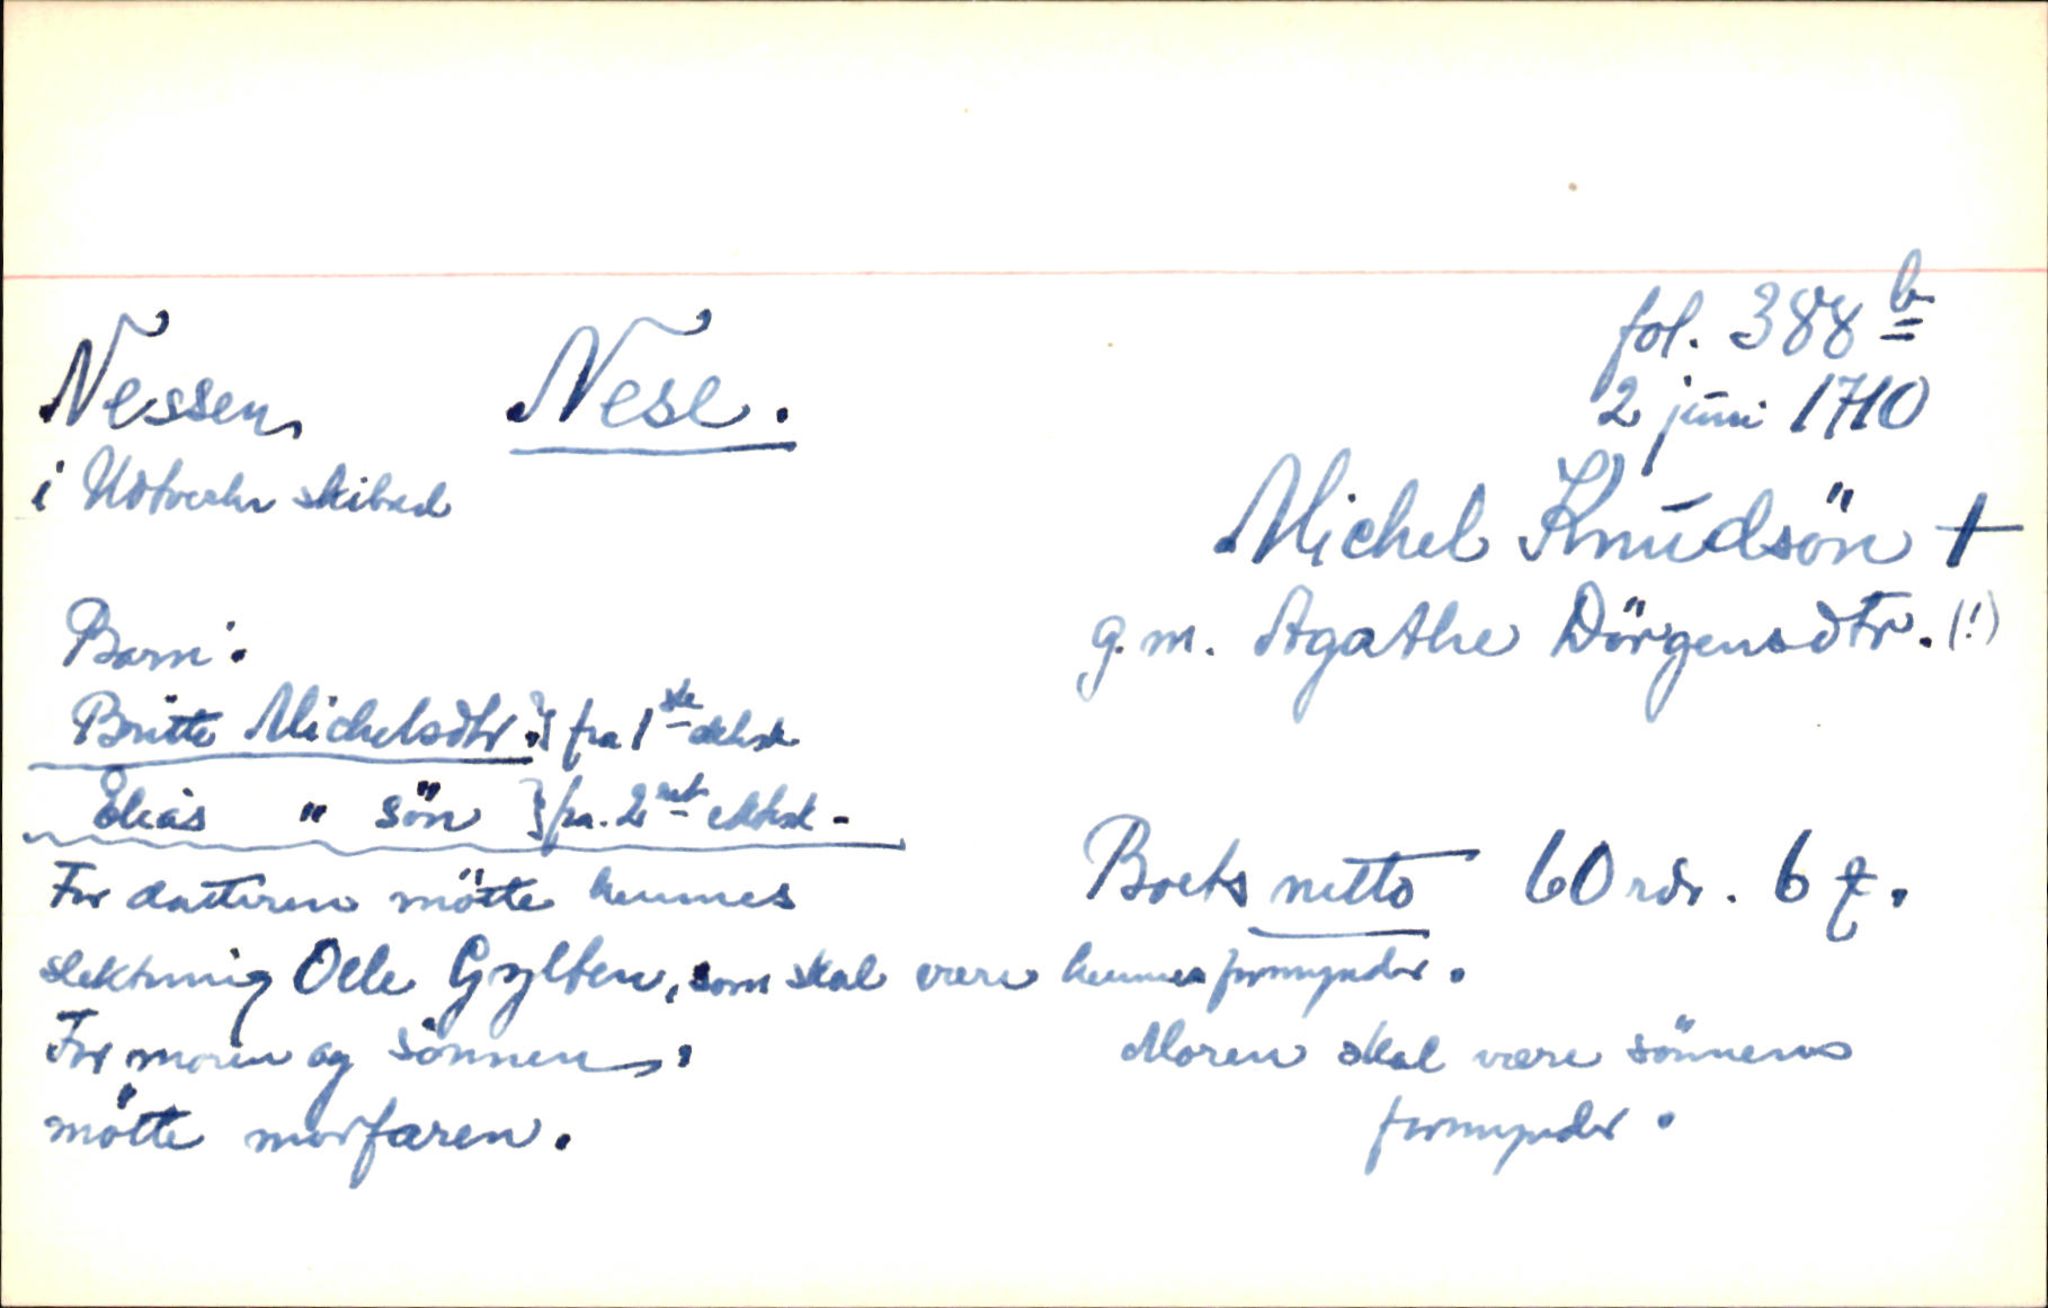 fol. 388 b
Nessen, Nese. 2 juni 1710
i Udtvær skibred
Michel Knudsön †
g. m. Agathe Dörgensdtr. (!)
Barn:
Britte Michelsdtr. } fra 1ste ektesk.
Elias " sön } fra. 2net ektesk. -
For datteren mötte hennes
Boets netto 60 rdr. 6 ƶ.
slektning Olle Gylten, som skal være hennes formynder.
For moren og sönnen,
mötte morfaren.
Moren skal være sönnens
formynder.